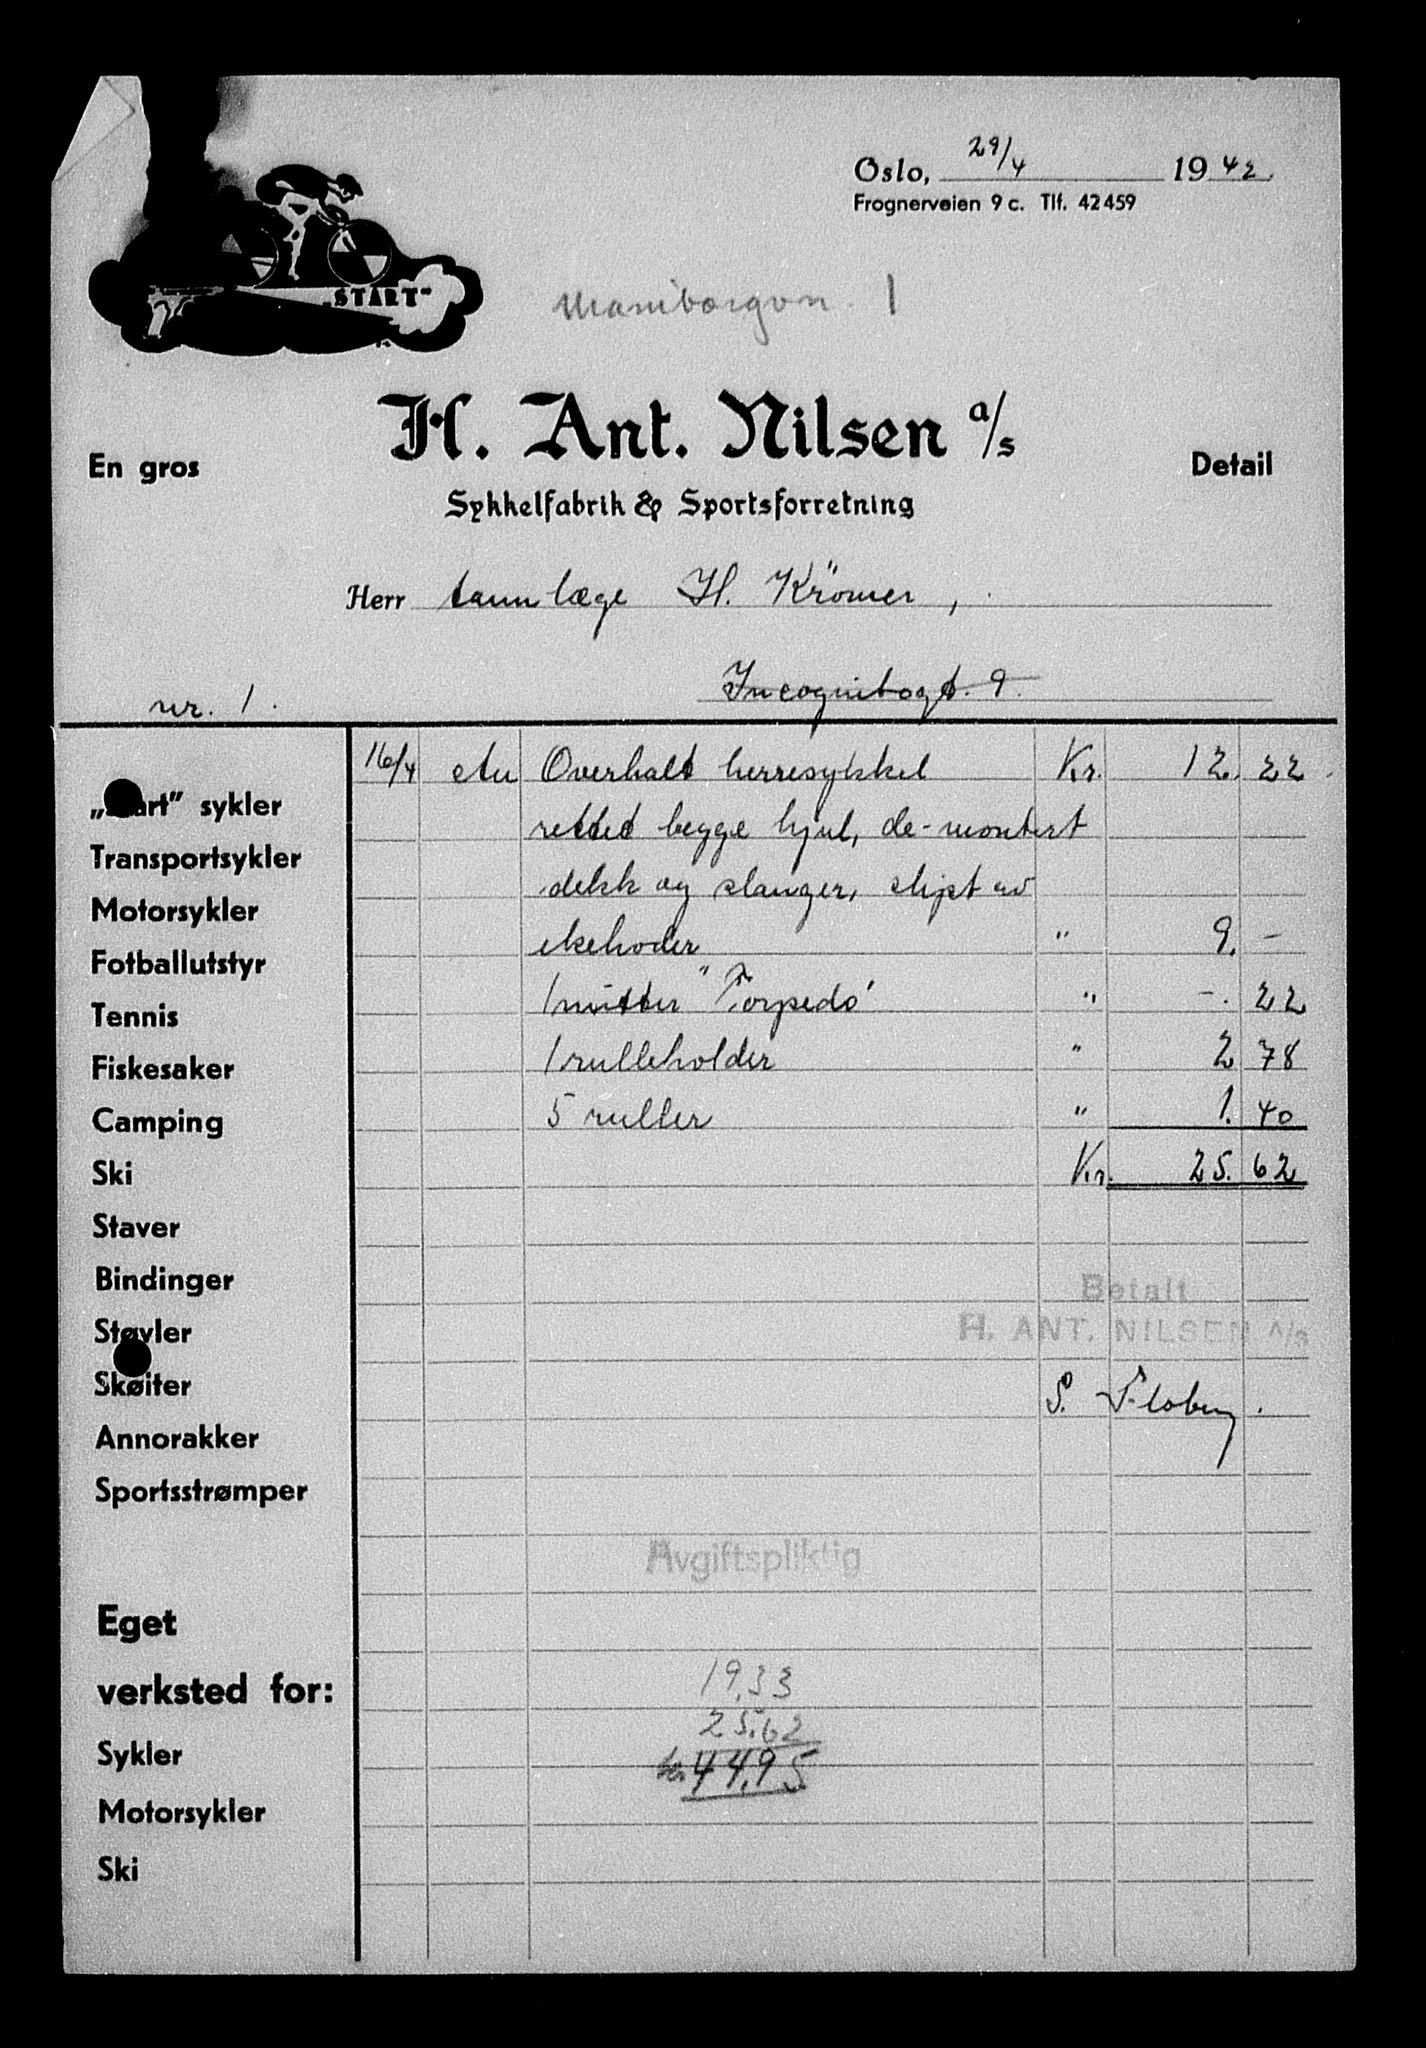 Oslo, 29/4 1942.
Frognerveien 9 c. Tlf. 42459
„START"
1
H. Ant. Nilsen a/s
En gros
Detail
Sykkelfabrik & Sportsforretning
Herr tannlæge H. Krömer,
Incognitogt. 9.
nr. 1.
16/4 An Overhalt herresykkel Kr. 12.22
rettet begge hjul, de-montert
dekk og slanger, slipt av
ekehoder " 9.-
1 mutter "Torpedo" " -.22
1 rulleholder " 2 78
5 ruller " 1.40
Kr. 25.62
sykler
Transportsykler
Motorsykler
Fotballutstyr
Tennis
Fiskesaker
Camping
Ski
Staver
Bindinger
Støvler
Skøiter
Annorakker
Sportsstrømper
Betalt
H. ANT. NILSEN A/S
S.
Avgiftspliktig
Eget
verksted for:
Sykler
Motorsykler
Ski
19,33
25.62
kr 44,95